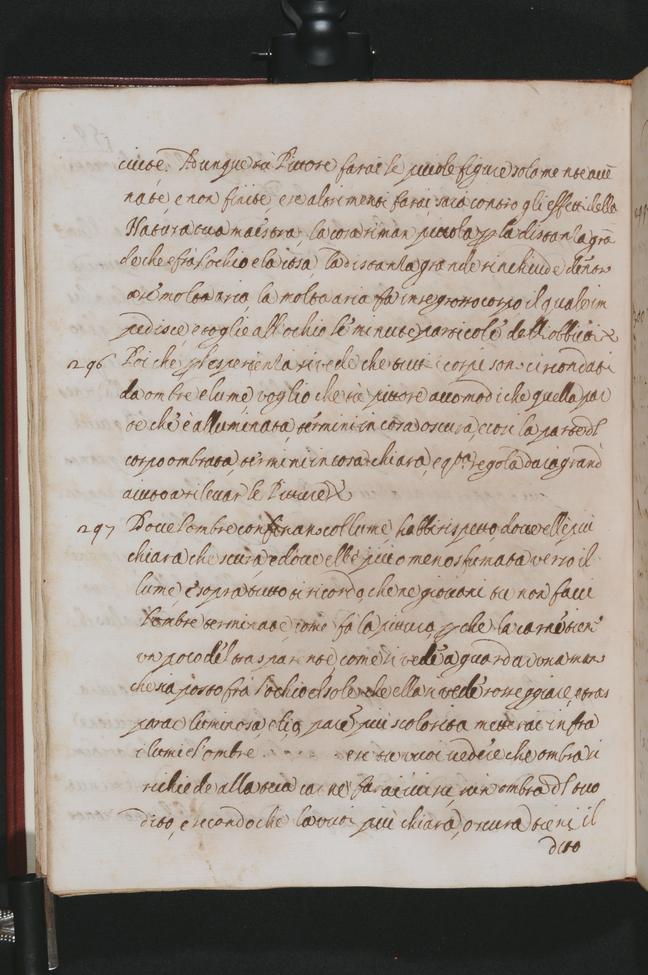 ciute. Dunque tu Pittore farai le picciole figure solamente acce
nate, e non finite, e se altrimenti farai, farai contro gli effetti della
Natura tua maestra, la cosa riman picciola p la distanza gra
de che è fra l'ochio e la cosa, la distanza grande rinchiude dentro
di sè molta aria la molta aria fà in se grosso corpo il quale im
pedisce e toglie all'ochio le minute particole dell'obbietti
296 Poi che p esperienza si vede che tutti i corpi sono circondati
da ombre e lume voglio che tu pittore accomodi che quella par
te che è alluminata, termini in cosa oscura, e cosi la parte dl
corpo ombrata termini in cosa chiara, e qsta regola darà grand
aiuto a rilevar le Pitture
297 Dove l'ombre confinano col lume, habbi rispetto dove ell'è più
chiara che scura, e dove ell'è più o meno sfumata verso il
lume, e sopra tutto ti ricordo che ne giovani tu non facci
l'ombre terminate come fà la pietra, p che la carne tiene
un poco del trasparente, come si vede a guardar una mano
che sia posta frà l'ochio e 'l sole che ella si vede rosseggiare, e tras
parere luminosa, e la parte più scolorita metterai infra
i lumi e l'ombre . . . . . e se tu vuoi vedere che ombra si
richiede alla tua carne farai ivi su un ombra dl tuo
dito, e secondo che la vuoi più chiara, o scura tieni il
dito